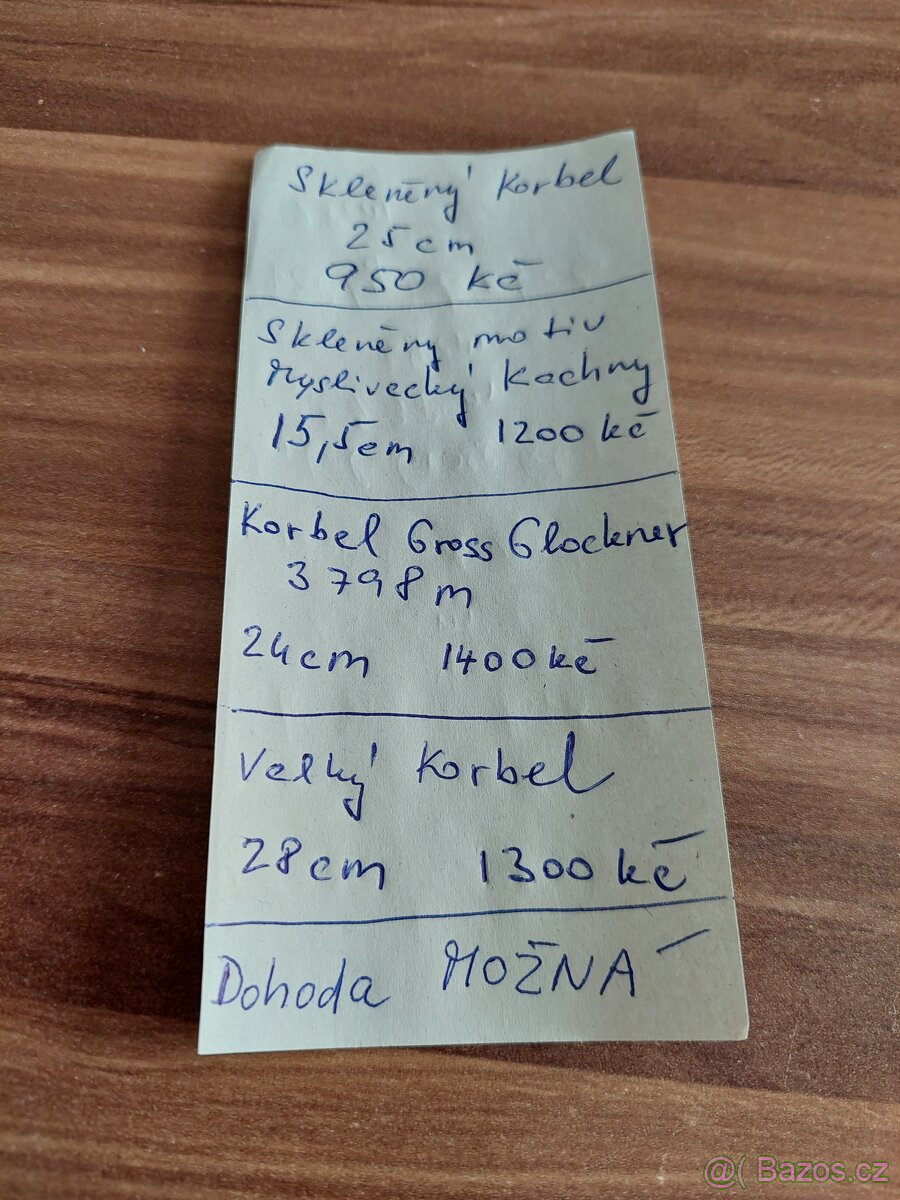 Skleněný Korbel
25cm
950 kč
Skleněny motiv
Myslivecký Kachny
15,5cm 1200kč
Korbel Gross Glockner
3798m
24cm 1400kč
Velký Korbel
28cm 1300kč
Dohoda MOŽNÁ
@( Bazos.cz